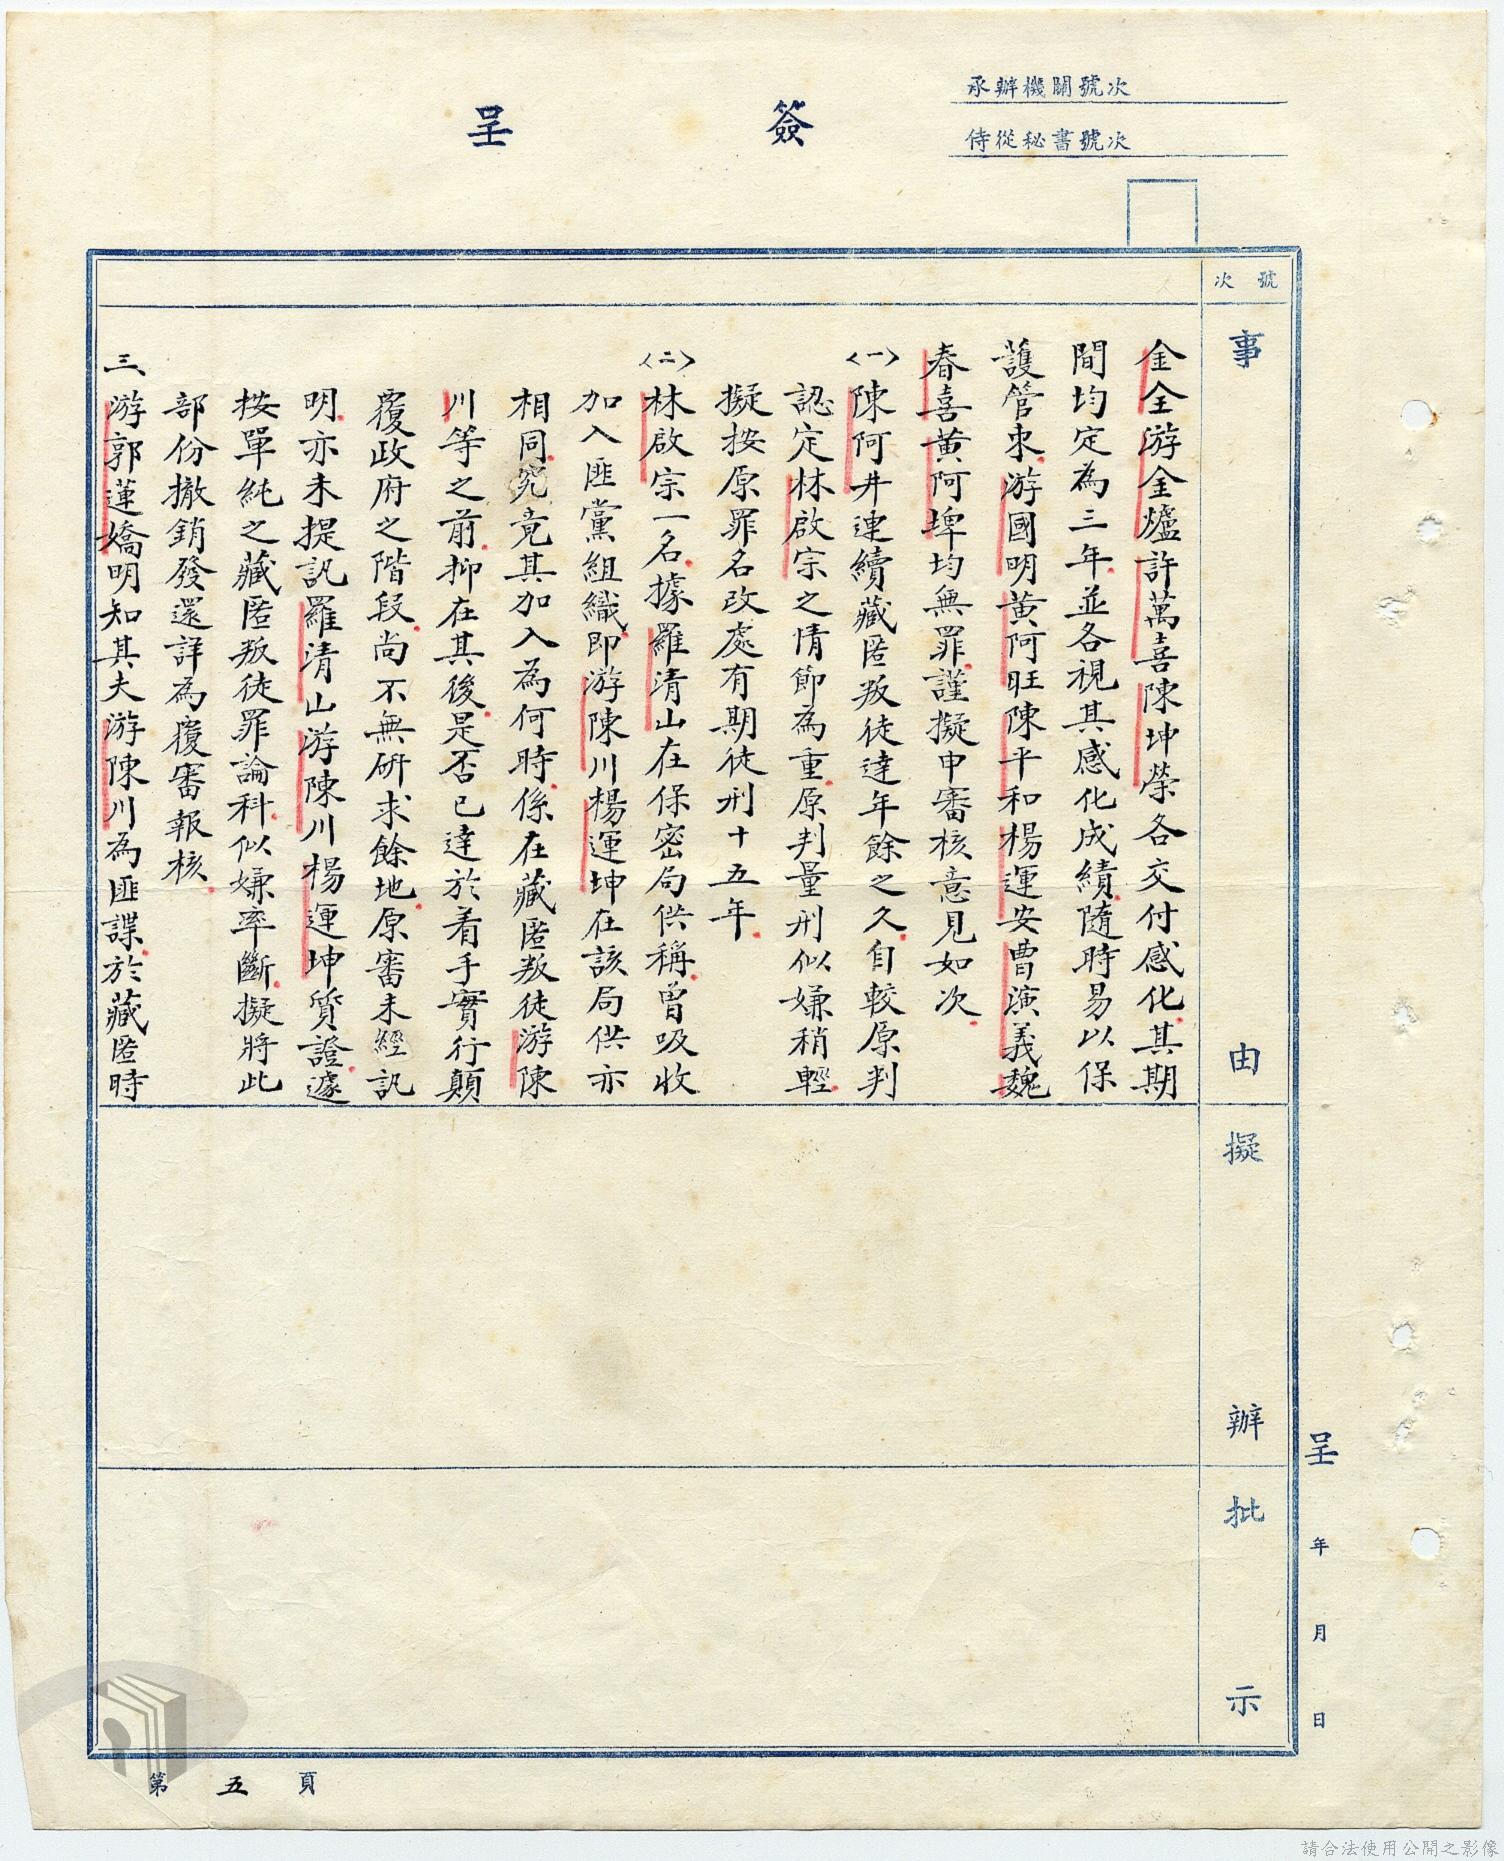 承辦機關號次
侍從秘書號次
簽呈
號次
事由
擬辦
批示
金全游金爐許萬喜陳坤榮各交付感化其期
間均定為三年並各視其感化成績隨時易以保
護管束游國明黃阿旺陳平和楊運安曹演義魏
春喜黃阿埤均無罪謹擬申審核意見如次
〈一〉陳阿井連續藏匿叛徒達年餘之久自較原判
認定林啟宗之情節為重原判量刑似嫌稍輕
擬按原罪名改處有期徒刑十五年
〈二〉林啟宗一名據羅清山在保密局供稱曾吸收
加入匪黨組織即游陳川楊運坤在該局供亦
相同究竟其加入為何時係在藏匿叛徒游陳
川等之前抑在其後是否已達於着手實行顛
覆政府之階段尚不無研求餘地原審未經訊
明亦未提訊羅清山游陳川楊運坤質證遽
按單純之藏匿叛徒罪論科似嫌率斷擬將此
部份撤銷發還詳為覆審報核
三、游郭蓮嬌明知其夫游陳川為匪諜於藏匿時
呈 年 月 日
第五頁
請合法使用公開之影像